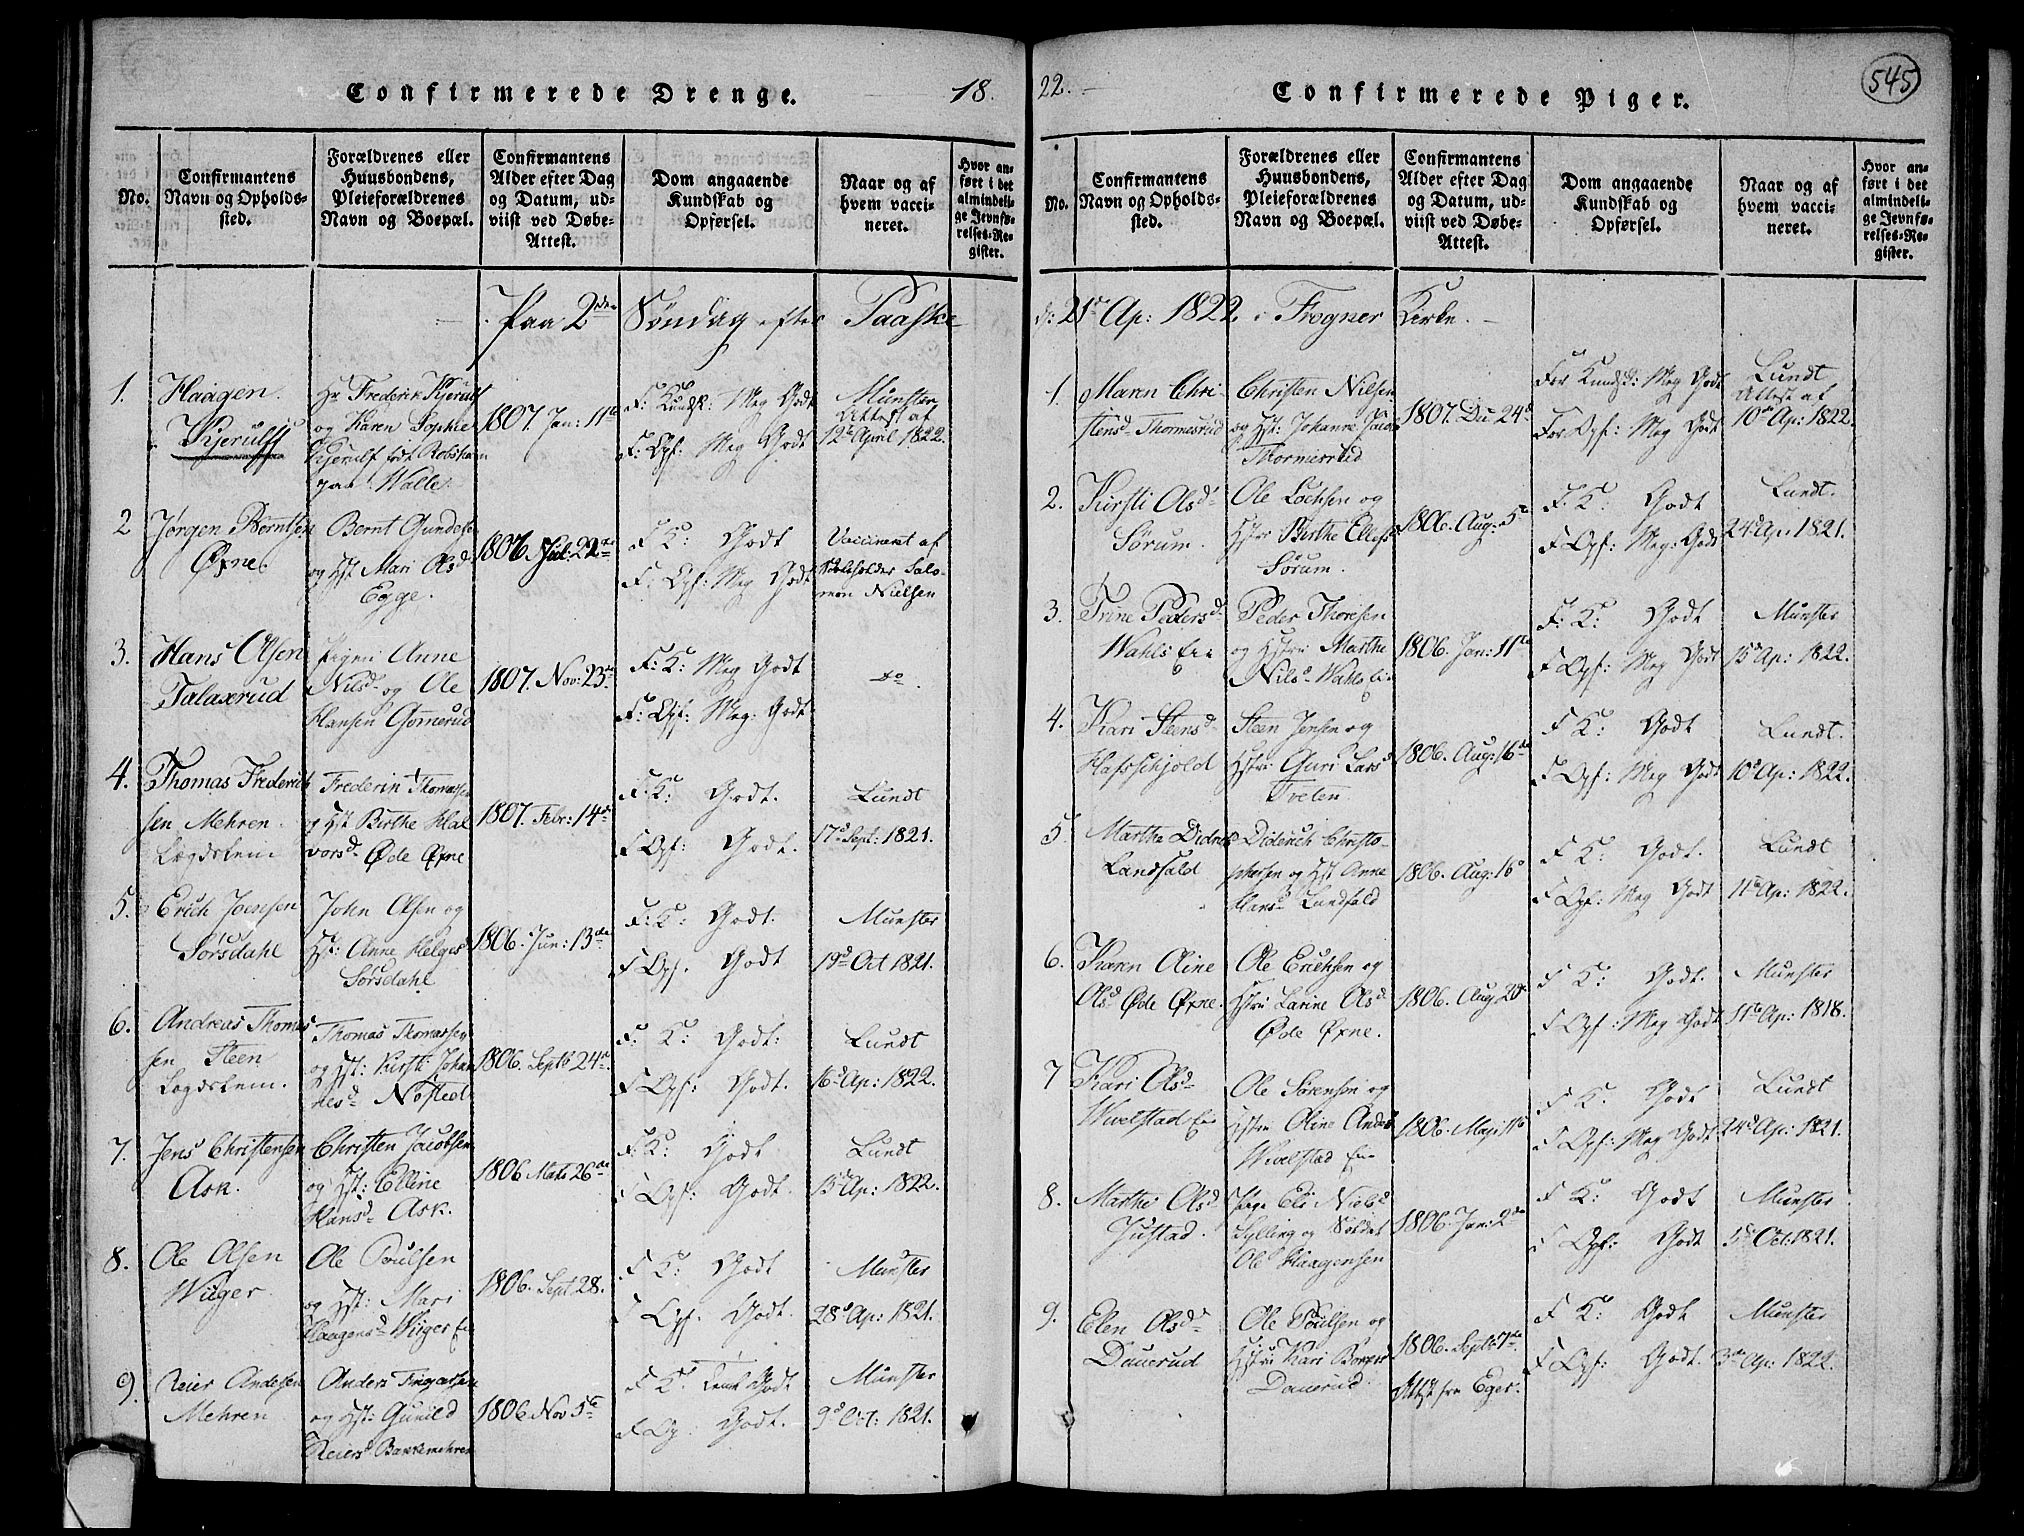 Confirmerede Drenge. 18
No.
Confirmantens
Navn og Opholds-
sted.
Forældrenes eller
Huusbondens,
Pleieforældrenes
Navn og Boepæl.
Confirmantens
Alder efter Dag
og Datum, ud-
viist ved Døbe-
Attest.
Dom angaaende
Kundskab og
Opførsel.
Naar og af
hvem vacci-
neret.
Hvor an-
ført i det
almindeli-
ge Jevnfø-
relses-Re-
gister.
Paa 2den Søndag efter Paaske
1.
Haagen
Kjerulff
Hr Frederik Kjerulf
og Karen Sophie
Kjerulf født Robsham
paa Walle.
1807. Jan: 11te
F: Kundsk: Meg Godt
F: Opf: Meg Godt
Munster
Attest af
12te April 1822.
2
Jørgen Berntsen
Øxne.
Bernt Gundes
og Hst Mari Olsd
Egge.
1806. Jul: 22de
F K: Godt
F: Opf: Meg Godt
Vaccineret af
Skoleholder Salo-
mon Nielsen
3.
Hans Olsen
Talaxrud
Pigen Anne
Nilsd og Ole
Hansen Gomerud
1807. Nov: 23de
F: K: Meg Godt
F: Opf: Meg: Godt
do
4.
Thomas Frederich
sen Mehren
Laegdslem
Frederik Thomassen
og Hst Birthe Hal
vorsd Øde Øxne
1807. Febr: 14de
F: K: Godt.
F Opf: Godt.
Lundt
17d Sept: 1821.
5.
Erich Joensen
Sørsdahl
John Olsen og
Hst: Anne Helges
Sørsdahl
1806. Jun: 13de
F: K: Godt.
F Opf. Godt
Munster
19d Oct 1821.
6.
Andreas Thomas
sen Steen
Lægdslem.
Thomas Thomassen
og Hst: Kirsti Johan
nesd Nøsted
1806. Septb 24de
F: K: Godt:
F Opf: Godt.
Lundt
16d Ap: 1822.
7.
Jens Christensen
Ask.
Christen Jacobsen
og Hst: Elline
Hansd Ask.
1806 Marts 26de
F K: Godt
F Opf: Godt.
Lundt
15d Ap: 1822.
8.
Ole Olsen
Wiiger
Ole Poulsen
og Hst: Mari
Haagensd Wiiger Eie
1806. Sept 28.
F K: Godt
F Opf. Godt.
Munster
28d Ap: 1821.
9.
Reier Andesen
Mehren
Anders
og Hst: Gunild
Reiersd Bakkemehren
1806 Nov 5te
F K: Godt
F Op: Godt.
Munster
9d Oct: 1821.
22. Confirmerede Piger. 545
No.
Confirmantens
Navn og Opholds-
sted.
Forældrenes eller
Huusbondens,
Pleieforældrenes
Navn og Boepæl.
Confirmantens
Alder efter Dag
og Datum, ud-
viist ved Døbe-
Attest.
Dom angaaende
Kundskab og
Opførsel.
Naar og af
hvem vacci-
neret.
Hvor an-
ført i det
almindeli-
ge Jevnfø-
relses-Re-
gister.
d: 21de Ap: 1822. i Frogner Kirke.
1.
Maren Chri
stensd Thomesrud
Christen Nilsen
og Hst: Johanne Jacobs
Thormersrud
1807. Dec 24d
For Kundsk: Meg Godt
For Opf: Meg Godt
Lundt
Attest af
10de Ap: 1822.
2.
Kirsti Olsd
Sørum
Ole Lochsen og
Hstr: Birthe Ellefsd
Sørum.
1806. Aug: 5te
F. K: Godt
F Opf: Meg: Godt
Lundt.
24d Ap: 1821.
3.
Trine Pedersd
Wahls Eie
Peder Thoresen
og Hstru Marthe
Nilsd Wahls Ei
1806. Jan: 11te
F: K: Godt
F Opf: Meg Godt
Munster
15d Ap: 1822.
4.
Kari Steensd
Hafsschjold
Steen Jensen og
Hstru: Guri Larsd
Tveten
1806. Aug: 16de
F K: Godt
F Opf: Meg Godt
Lundt.
10d Ap: 1822.
5
Marthe Didriks
Landfald
Diderich Christo-
phersen og Hst Anne
Hansd Lundfald
1806. Aug: 16d
F K: Godt.
F Opf: Meg Godt
Lundt
11te Ap: 1822.
6.
Karen Oline
Olsd Øde Øxne.
Ole Erichsen og
Hstru Larine Olsd
Øde Øxne.
1806. Aug. 20de
F K: Godt.
F Opf: Meg Godt
Munster
11te Ap: 1818.
7
Kari Olsd
Wivelstad Eie
Ole Sørensen og
Hstru Oline Anders
Wivelstad Eie
1806. Maj: 11te
F K: Godt
F Opf: Meg Godt
Lundt
24d Ap: 1821.
8.
Marthe Olsd
Justad.
Pige Eli Nielsd
Sylling og Soldat
Ole Haagensen
1806. Jan: 2de
F K: Godt
F Opf: Godt
Munster
5te Oct: 1821.
9.
Elen Olsd
Dauerud
Ole Poulsen og
Hstru Kari Borgers
Dauerud.
1806. Septb: 7de
Attst fra Eger.
F K: Godt
F Opf: Godt.
Munster
3die Ap: 1822.